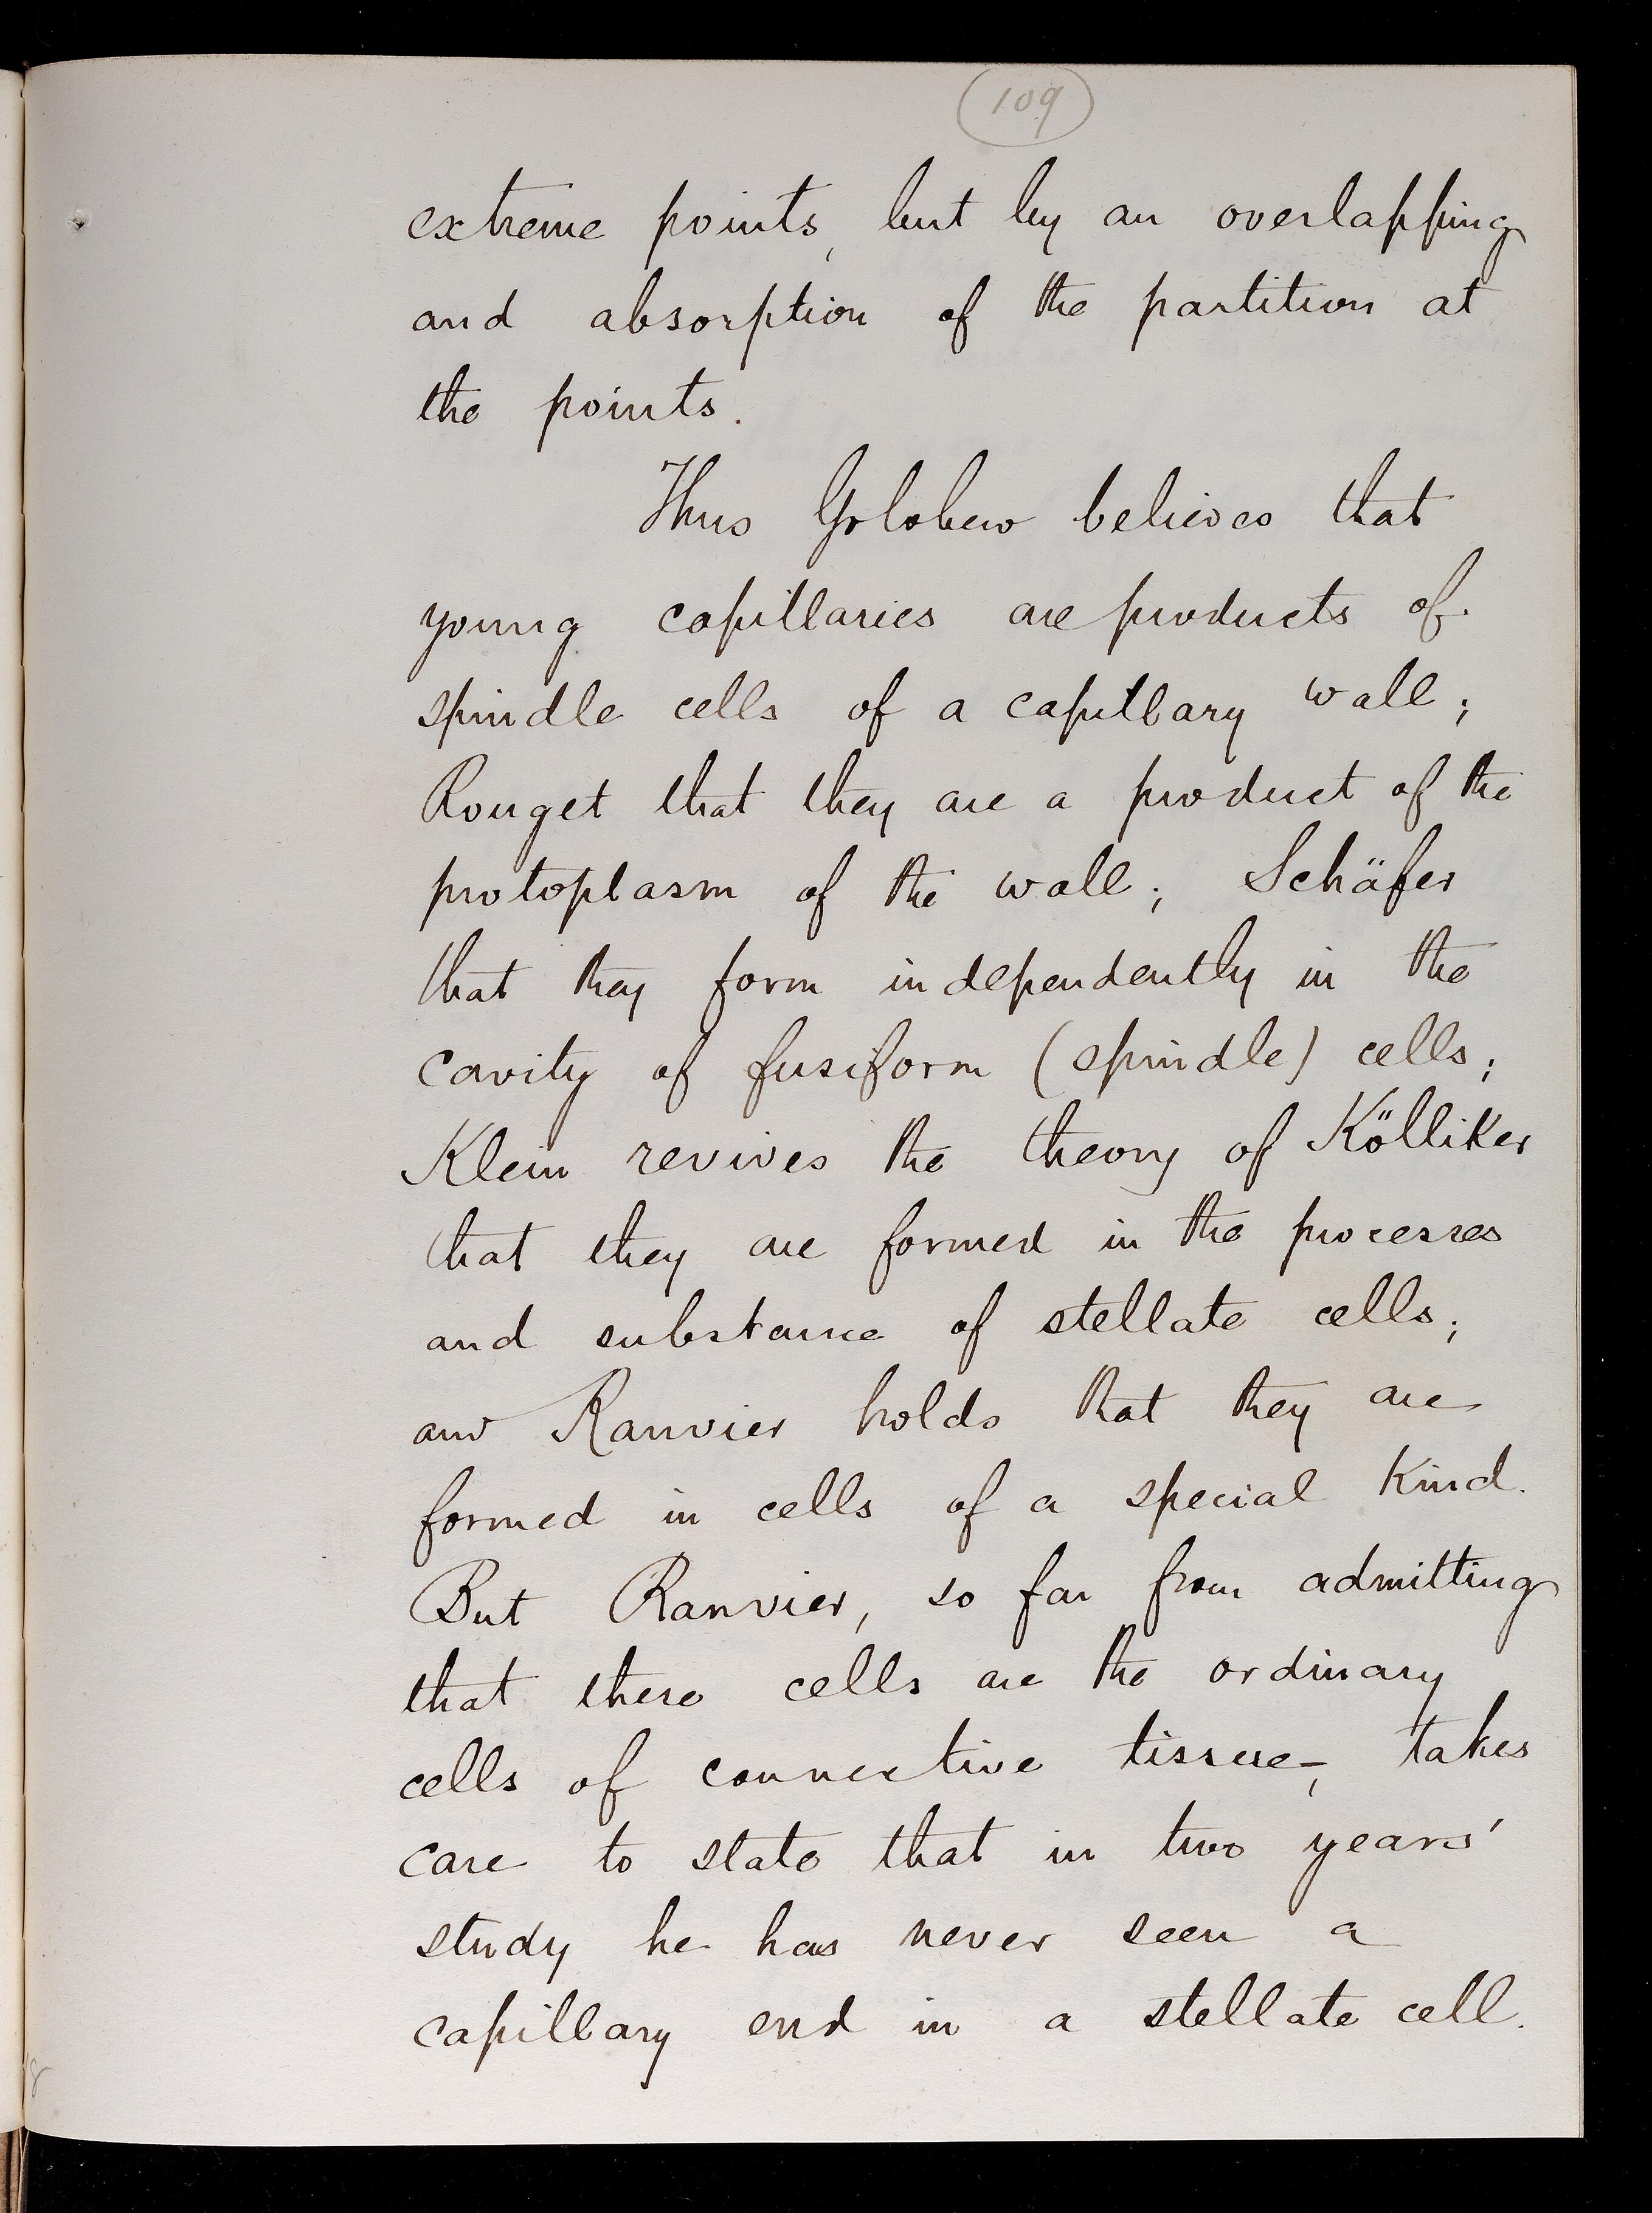 109
extreme points, but by an overlapping
and absorption of the partition at
the points.
Thus Golobew believes that
young capillaries are products of
spindle cells of a capillary wall;
Rouget that they are a product of the
protoplasm of the wall; Schäfer
that they form independently in the
cavity of fusiform (spindle) cells;
Klein revives the theory of Kölliker
that they are formed in the processes
and substance of stellate cells;
and Ranvier holds that they are
formed in cells of a special kind.
But Ranvier, so far from admitting
that these cells are the ordinary
cells of connective tissue, takes
care to state that in two years'
study he has never seen a
capillary end in a stellate cell.